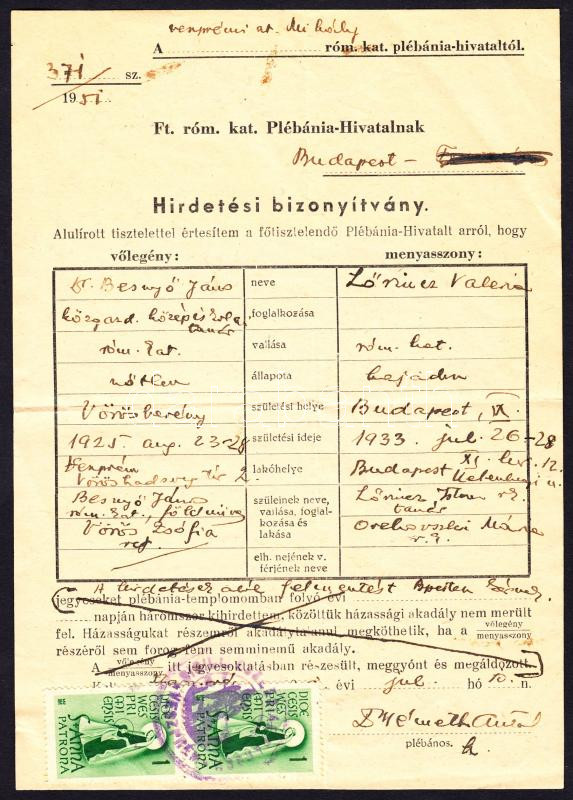 veszprémi szt. Mihály
A róm. kat. plébánia-hivataltól.
371 sz.
1951
Ft. róm. kat. Plébánia-Hivatalnak
Budapest –
Hirdetési bizonyítvány.
Alulírott tisztelettel értesítem a főtisztelendő Plébánia-Hivatalt arról, hogy
vőlegény: menyasszony:
Dr. Besnyő János neve Lőrincz Valéria
közgazd. középiskolai tanár foglalkozása
róm. kat. vallása róm. kat.
nőtlen állapota hajadon
Vörösberény születési helye Budapest,
1925 aug. 23-28 születési ideje 1933. jul. 26-28
Veszprém lakóhelye Budapest XI. ker.
Vöröshadsereg tér 2.
Besnyő János szüleinek neve, Lőrincz
róm. kat., földműves vallása, foglal- tanár
Vörös Zsófia kozása és Mária
ref. lakása
elh. nejének v.
férjének neve
A hirdetések alól felmentést
jegyeseket plébánia-templomomban folyó évi
napján háromszor kihirdettem, közöttük házassági akadály nem merült
fel. Házasságukat részemről akadálytalanul megköthetik, ha a vőlegény
menyasszony
részéről sem forog fenn semminemű akadály.
A vőlegény
menyasszony itt jegyesoktatásban részesült, meggyónt és megáldozott.
évi jul. hó 10. n.
Dr Németh
plébános.
DIOECESIS VESPRIMIENSIS
S. ANNA
PATRONA
1
DIOECESIS VESPRIMIENSIS
S. ANNA
PATRONA
1